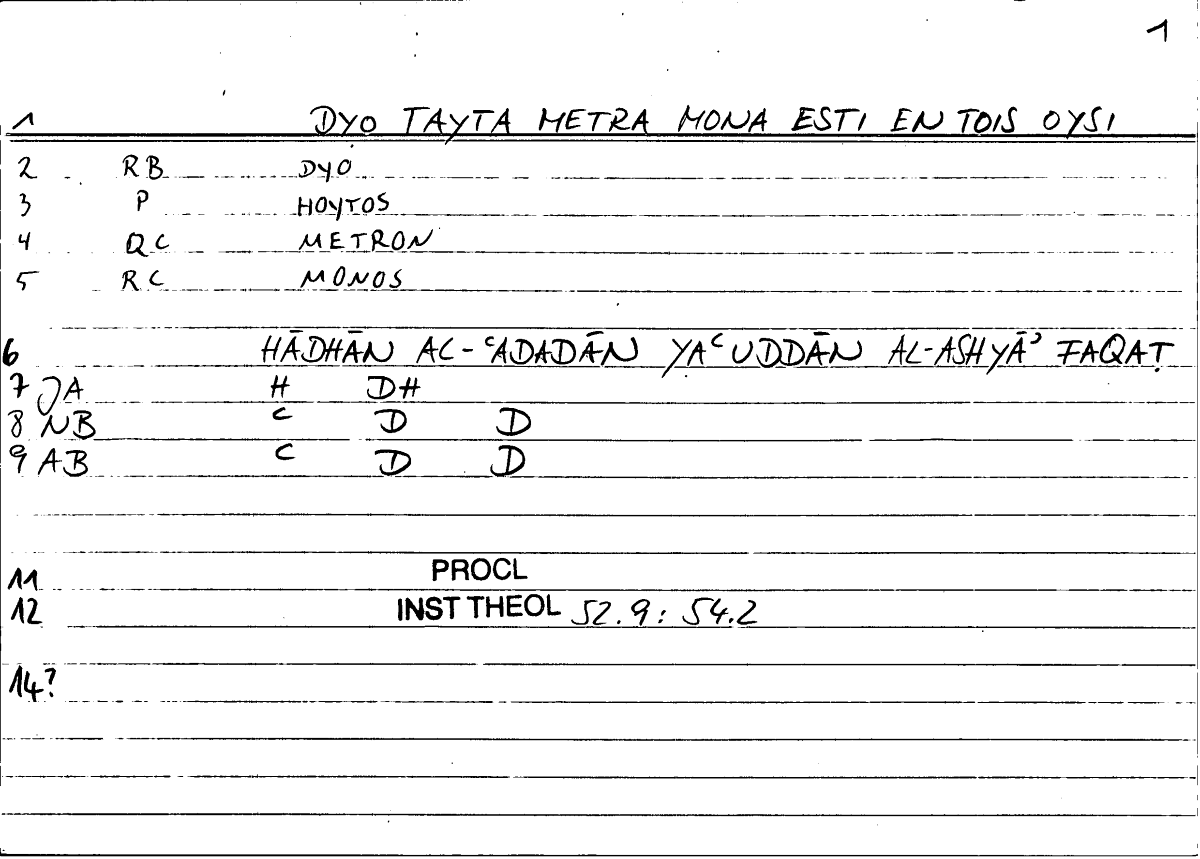 1
1 DYO TAYTA METRA MONA ESTI EN TOIS OYSI
2 RB DYO
3 P HOYTOS
4 QC METRON
5 RC MONOS
6 HĀDHĀN AL-ʿADADĀN YAʿUDDĀN AL-ASHYĀʾ FAQAṬ
7 JA H DH
8 NB ʿ D D
9 AB ʿ D D
11 PROCL
12 INST THEOL 52.9: 54.2
14?